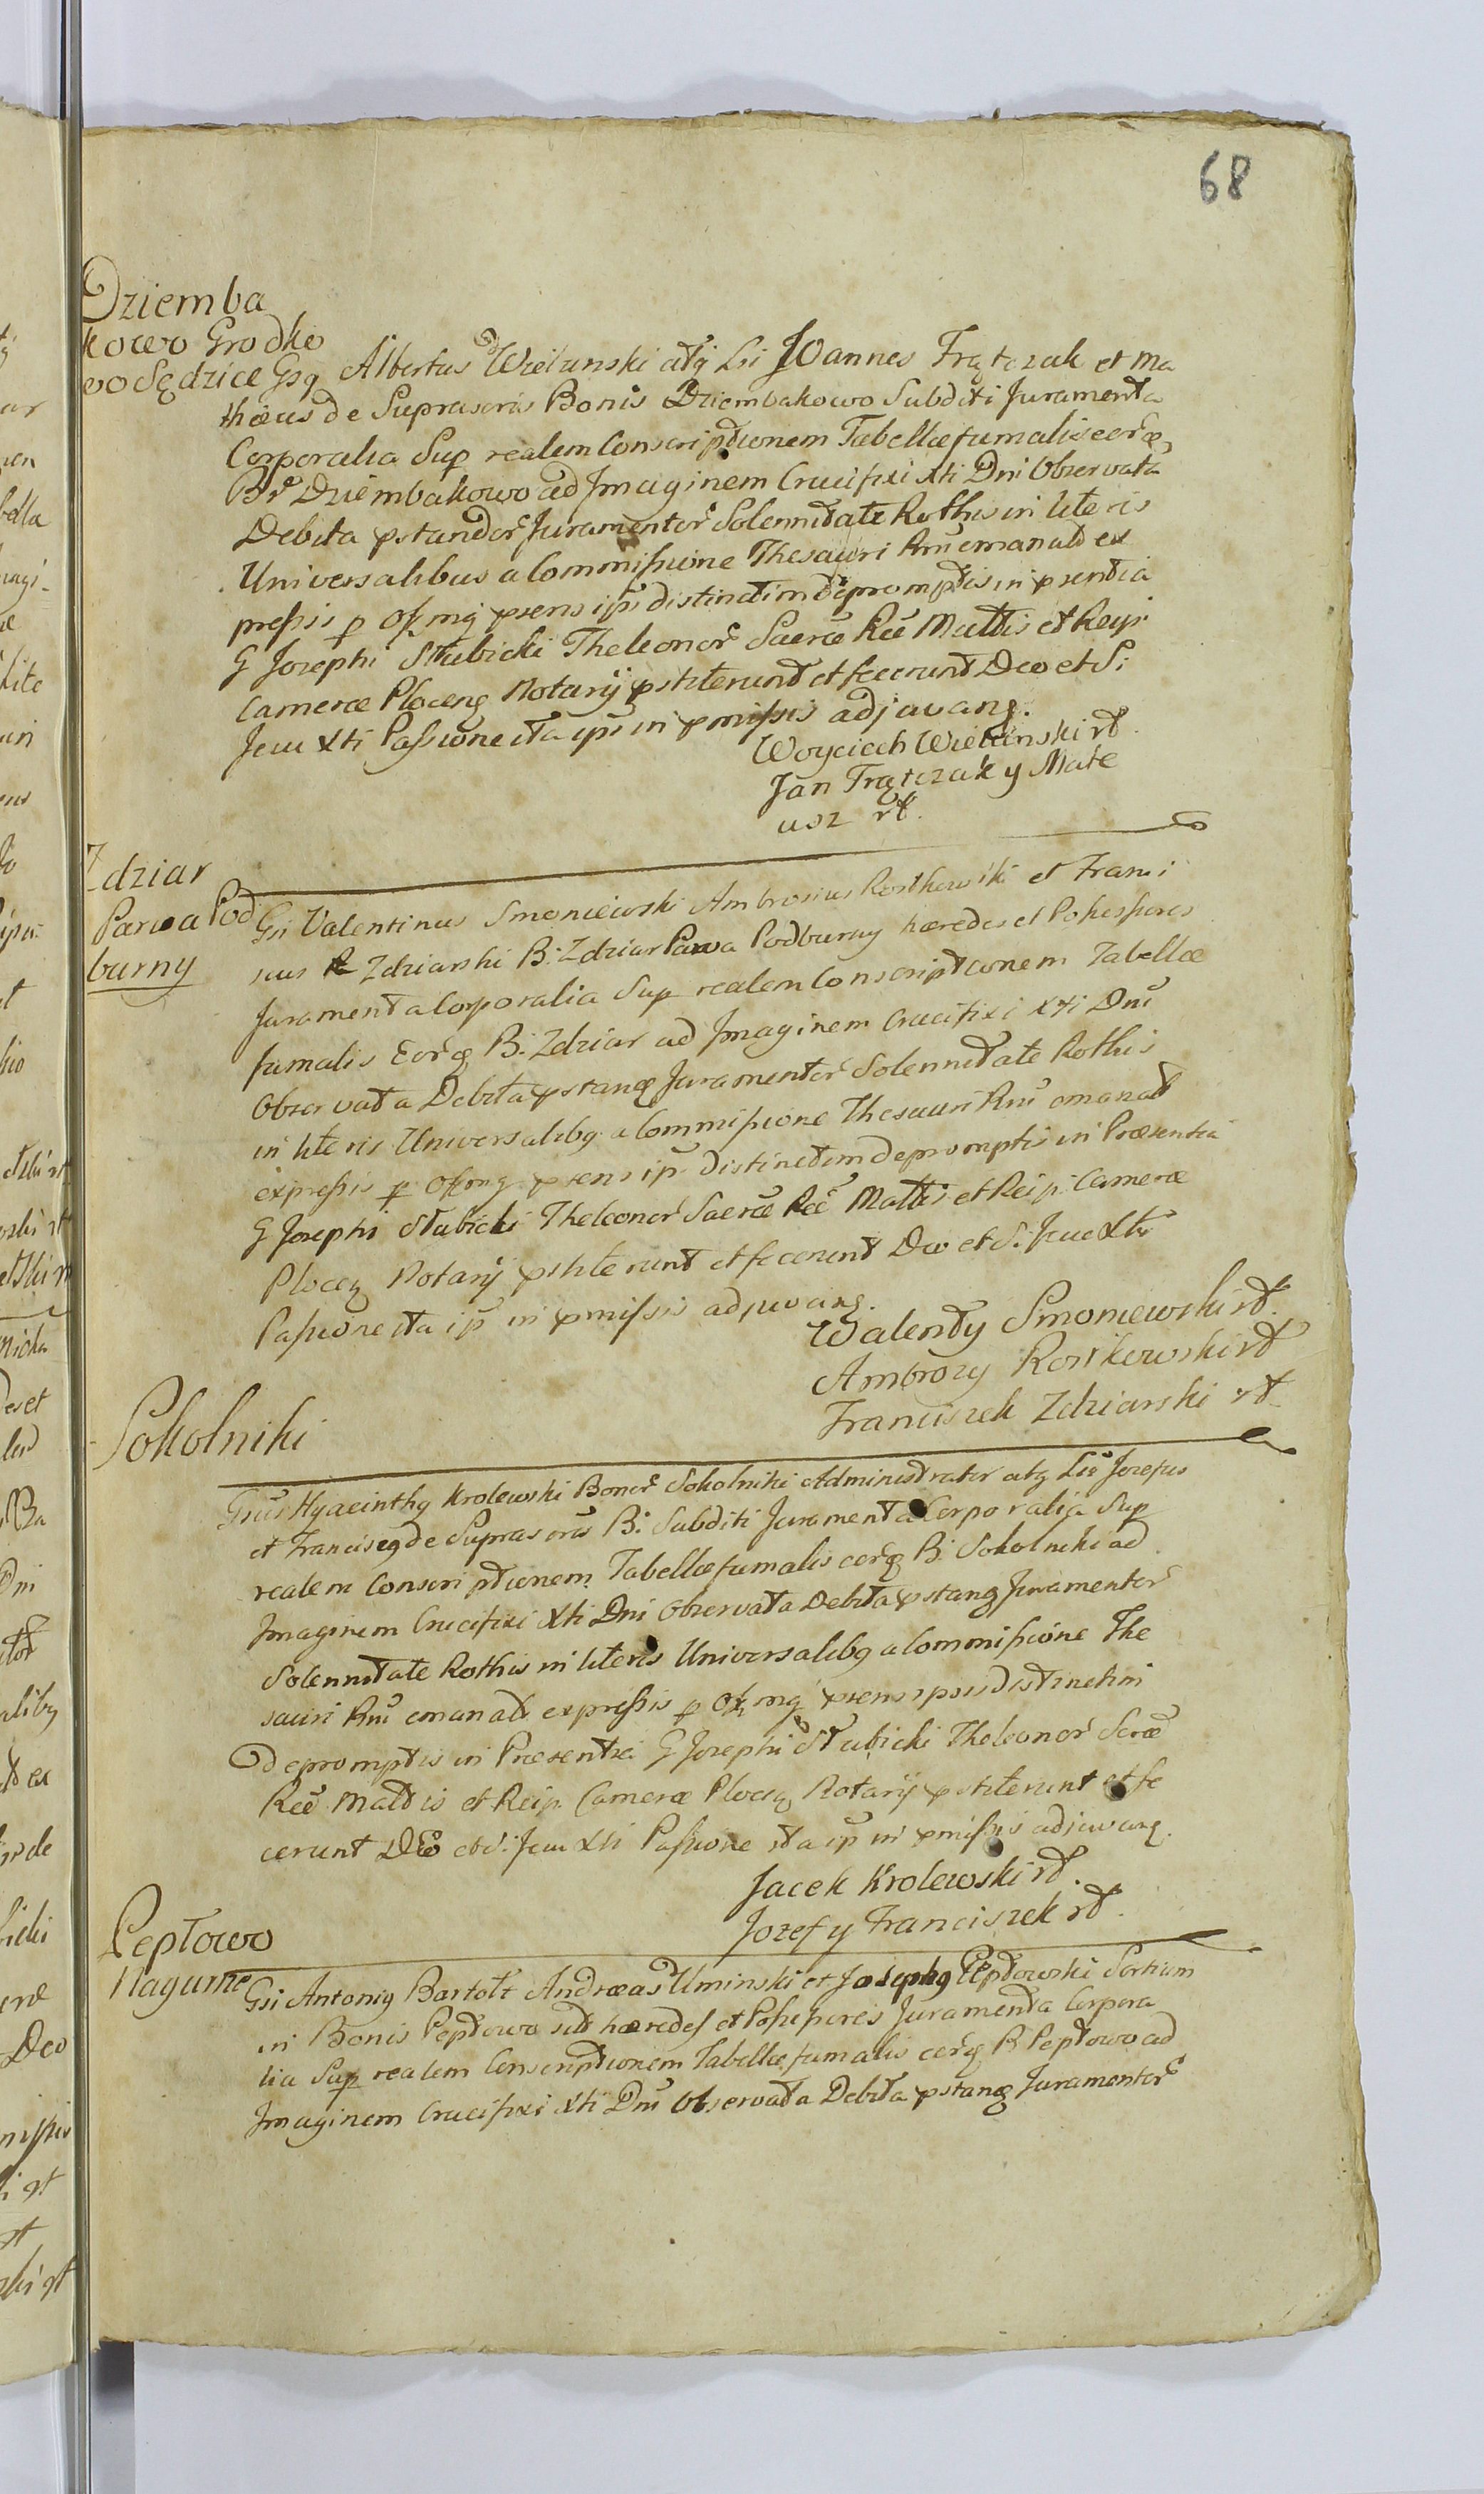 68
Dziemba
kowo Grodko
wo Sędzice Gsq Albertus Wielunski atq Lri JOannes Frątczak et Ma
thæus de Suprascris Bonis Dziembakowo Subditi Juramenta
Corporalia Sup realem Conscriptionem Tabellæ fumalis eorq
Br Dziembakowo ad Jmaginem Crucifixi Xti Dni Observata
Debita pstandor Juramentor Solennitate Rothis in literis
Universalibus a Commissione Thesauri Rni emanatt ex
pressis p Off mg psens ipis distinctim depromptis in psentia
G Josephi Słubicki Theleonor Sacræ Ræ Mattis et Reip
Cameræ Plocens Notarij pstiterunt et fecerunt Deo et S:
Jesu Xti Passione ita ipis in pmissis adjuvang.
Woyciech Wielunski rt.
Jan Frątczak y Mate
usz rt.
Zdziar
Parva Pod
burny
Gsi Valentinus Smoniewski Ambrosius Rostkowski et Franci
scus Zdziarski B: Zdziar Parva Podburny hæredes et Possessores
Juramenta Corporalia Sup realem Conscriptionem Tabellæ
fumalis Eorq B: Zdziar ad Jmaginem Crucifixi Xti Dni
Observata Debita pstang Juramentor Solennitate Rothis
in literis Universalibq a Commissione Thesauri Rni emanatt
expressis p Off mg psens ip distinctim depromptis in Præsentia
G Josephi Słubicki Theleonor Sacræ Ræ Mattis et Reip: Cameræ
Plocen Notarij pstiterunt et fecerunt Deo et S: Jesu Xti
Passione ita ip in pmissis adjuvang.
Walenty Smoniewski rt.
Ambrozy Rostkowski rt
Franciszek Zdziarski rt
Sokolniki
Gsus Hyacinthq Krolewski Bonor Sokolniki Administrator atq Lis Josefus
et Franciscq de Supras cris B: Subditi Juramenta Corporalia Sup
realem Conscriptionem Tabellæ fumalis eorq B: Sokolniki ad
Jmaginem Crucifixi Xti Dni Observata Debita pstang Juramentor
Solennitate Rothis in literis Universalibq a Commissione The
sauri Rni emanatt expressis p Off mg psens ipsis distinctim
depromptis in Præsentia G Josephi Słubicki Theleonor Scræ
Ræ Mattis et Reip. Cameræ Plocen Notarij pstiterunt et fe
cerunt DEo et S: Jesu Xti Passione ita ip in pmissis adjuvang.
Jacek Krolewski rt.
Jozef y Franciszek rt.
Pepłowo
Nagume
Gsi Antoniq Bartolt Andræas Uminski et Josephq Pepłowski Sortium
in Bonis Pepłowo sitt hæredes et Possessores Juramenta Corpora
lia Sup realem Conscriptionem Tabellæ fumalis eorq B Pepłowo ad
Jmaginem Crucifixi Xti Dni Observata Debita pstang Juramentor